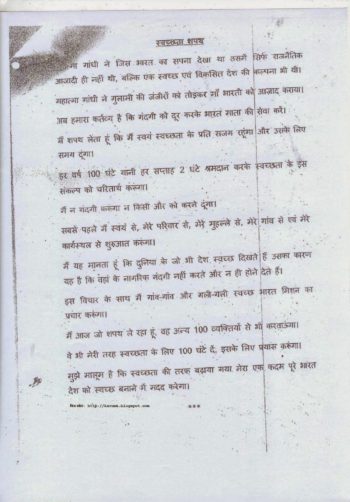 स्वच्छता शपथ
गांधी ने जिस भारत का सपना देखा था उसमें सिर्फ राजनैतिक
आजादी ही नहीं थी, बल्कि एक स्वच्छ एवं विकसित देश की कल्पना भी थी।
महात्मा गांधी ने गुलामी की जंजीरों को तोड़कर माँ भारती को आजाद कराया।
अब हमारा कर्तव्य है कि गंदगी को दूर करके भारत माता की सेवा करें।
मैं शपथ लेता हूं कि मैं स्वयं स्वच्छता के प्रति सजग रहूंगा और उसके लिए
समय दूंगा।
हर वर्ष 100 घंटे यानी हर सप्ताह 2 घंटे श्रमदान करके स्वच्छता के इस
संकल्प को चरितार्थ करूंगा।
मैं न गंदगी करूंगा न किसी और को करने दूंगा।
सबसे पहले मैं स्वयं से, मेरे परिवार से, मेरे मुहल्ले से, मेरे गांव से एवं मेरे
कार्यस्थल से शुरुआत करूंगा।
मैं यह मानता हूं कि दुनिया के जो भी देश स्वच्छ दिखते हैं उसका कारण
यह है कि वहां के नागरिक गंदगी नहीं करते और न ही होने देते हैं।
इस विचार के साथ मैं गांव-गांव और गली-गली स्वच्छ भारत मिशन का
प्रचार करूंगा।
मैं आज जो शपथ ले रहा हूं, वह अन्य 100 व्यक्तियों से भी करवाऊंगा।
वे भी मेरी तरह स्वच्छता के लिए 100 घंटे दें, इसके लिए प्रयास करूंगा।
मुझे मालूम है कि स्वच्छता की तरफ बढ़ाया गया मेरा एक कदम पूरे भारत
देश को स्वच्छ बनाने में मदद करेगा।
***